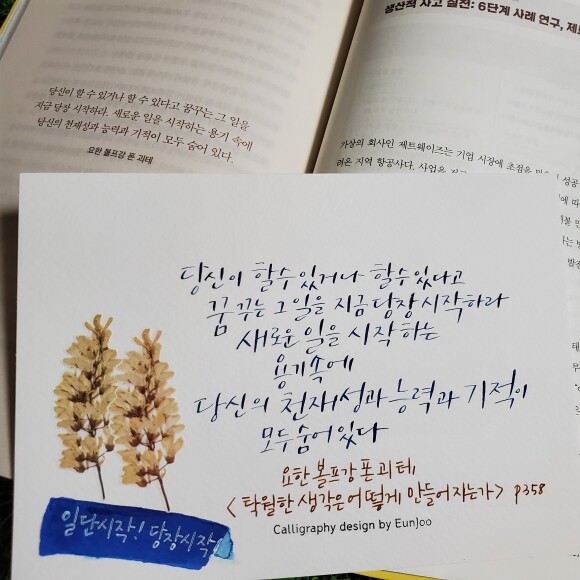 당신이 할 수 있거나 할 수 있다고 꿈꾸는 그 일을
지금 당장 시작하라. 새로운 일을 시작하는 용기 속에
당신의 천재성과 능력과 기적이 모두 숨어 있다.
요한 볼프강 폰 괴테
생산적 사고 실전: 6단계 사례 연구, 제트
가상의 회사인 제트웨이즈는 기업 시장에 초점을
려온 지역 항공사다. 사업을
당신이 할수있거나 할수있다고
꿈꾸는 그 일을 지금 당장 시작하라
새로운 일을 시작하는
용기속에
당신의 천재성과 능력과 기적이
모두 숨어 있다
요한 볼프강 폰 괴테,
<탁월한 생각은 어떻게 만들어지는가> p358
Calligraphy design by EunJoo
일단시작! 당장시작!